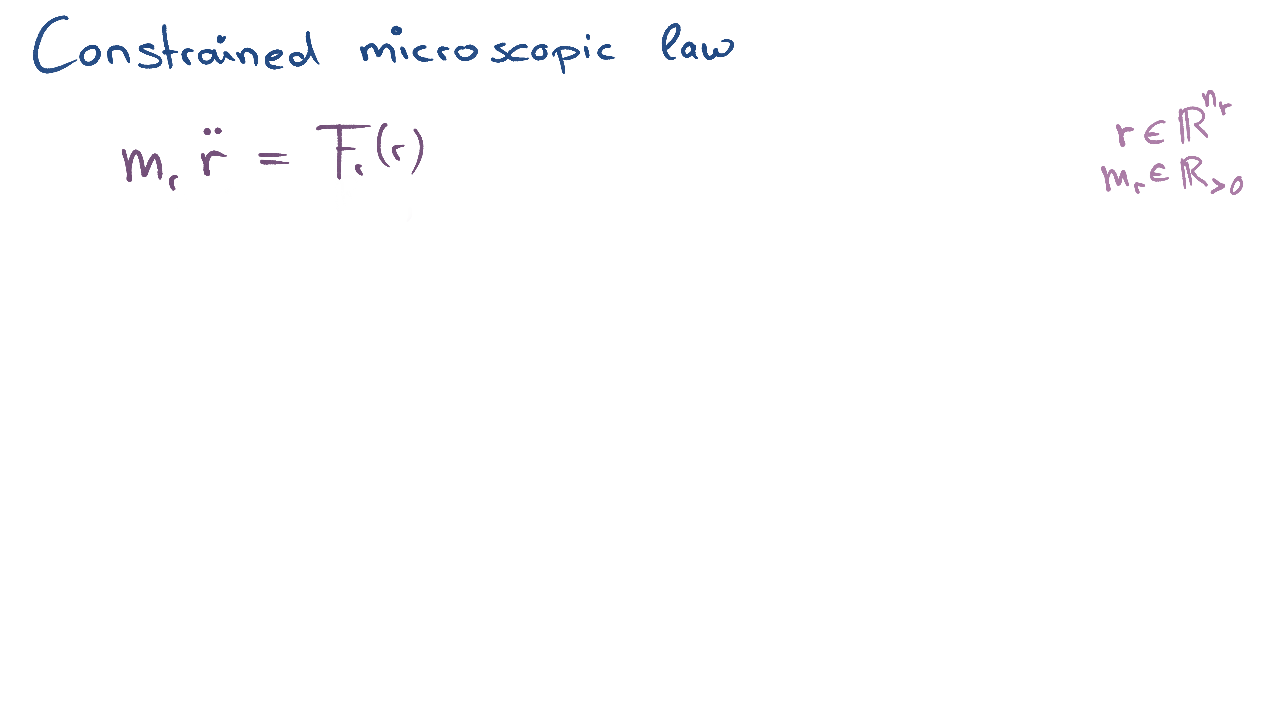 Constrained microscopic law
m_r r̈ = F_r(r)
r ∈ ℝ^{n_r}
m_r ∈ ℝ_{>0}